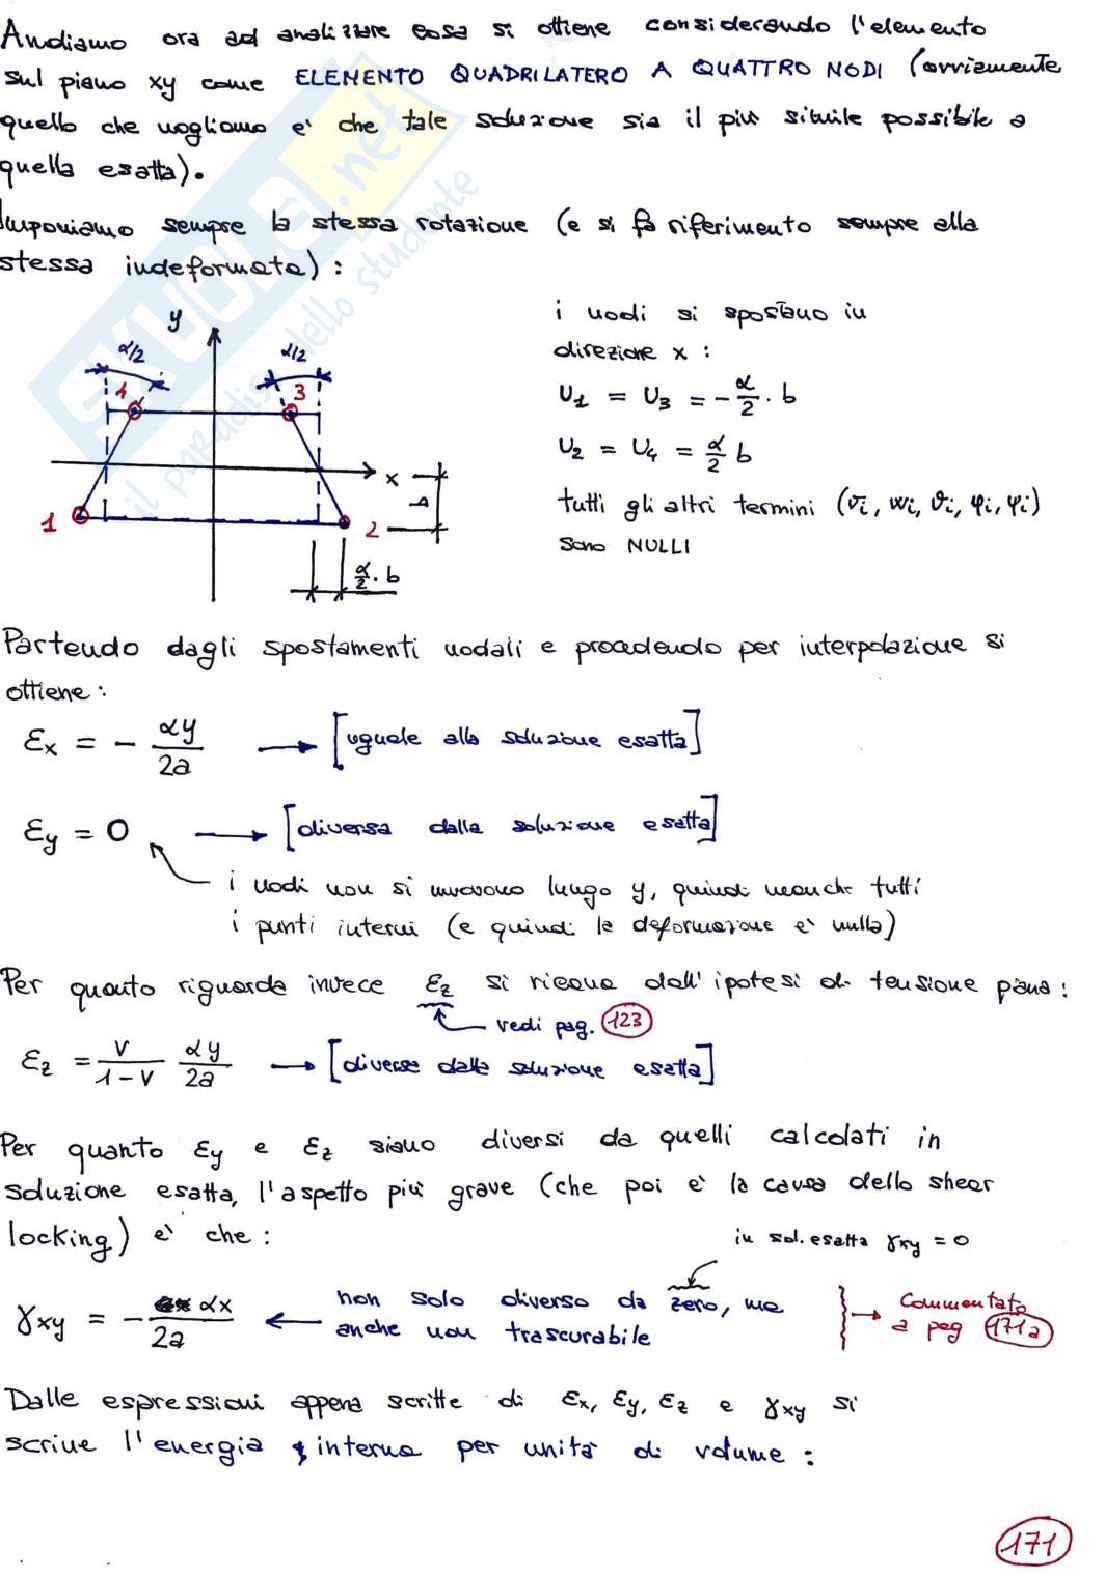 Andiamo ora ad analizzare cosa si ottiene considerando l'elemento
sul piano xy come ELEMENTO QUADRILATERO A QUATTRO NODI (ovviamente
quello che vogliamo e' che tale soluzione sia il più simile possibile a
quella esatta).
Imponiamo sempre la stessa rotazione (e si fa riferimento sempre alla
stessa indeformata):
y
α/2
α/2
4
3
x
1
2
b
α/2 · b
i nodi si spostano in
direzione x :
U1 = U3 = - α/2 · b
U2 = U4 = α/2 b
tutti gli altri termini (vi, wi, θi, φi, ψi)
sono NULLI
Partendo dagli spostamenti nodali e procedendo per interpolazione si
ottiene :
εx = - αy/2a → [uguale alla soluzione esatta]
εy = 0 → [diversa dalla soluzione esatta]
i nodi non si muovono lungo y, quindi neanche tutti
i punti interni (e quindi la deformazione e' nulla)
Per quanto riguarda invece εz si ricava dall'ipotesi di tensione piana :
vedi pag. 123
εz = ν/1-ν αy/2a → [diversa dalla soluzione esatta]
Per quanto εy e εz siano diversi da quelli calcolati in
soluzione esatta, l'aspetto più grave (che poi e' la causa dello shear
locking) e' che :
in sol. esatta γxy = 0
γxy = - αx/2a ← non solo diverso da zero, ma
anche non trascurabile
→ Commentato
a pag 171a
Dalle espressioni appena scritte di εx, εy, εz e γxy si
scrive l'energia interna per unità di volume :
171
SKUOLA.net
il paradiso dello studente